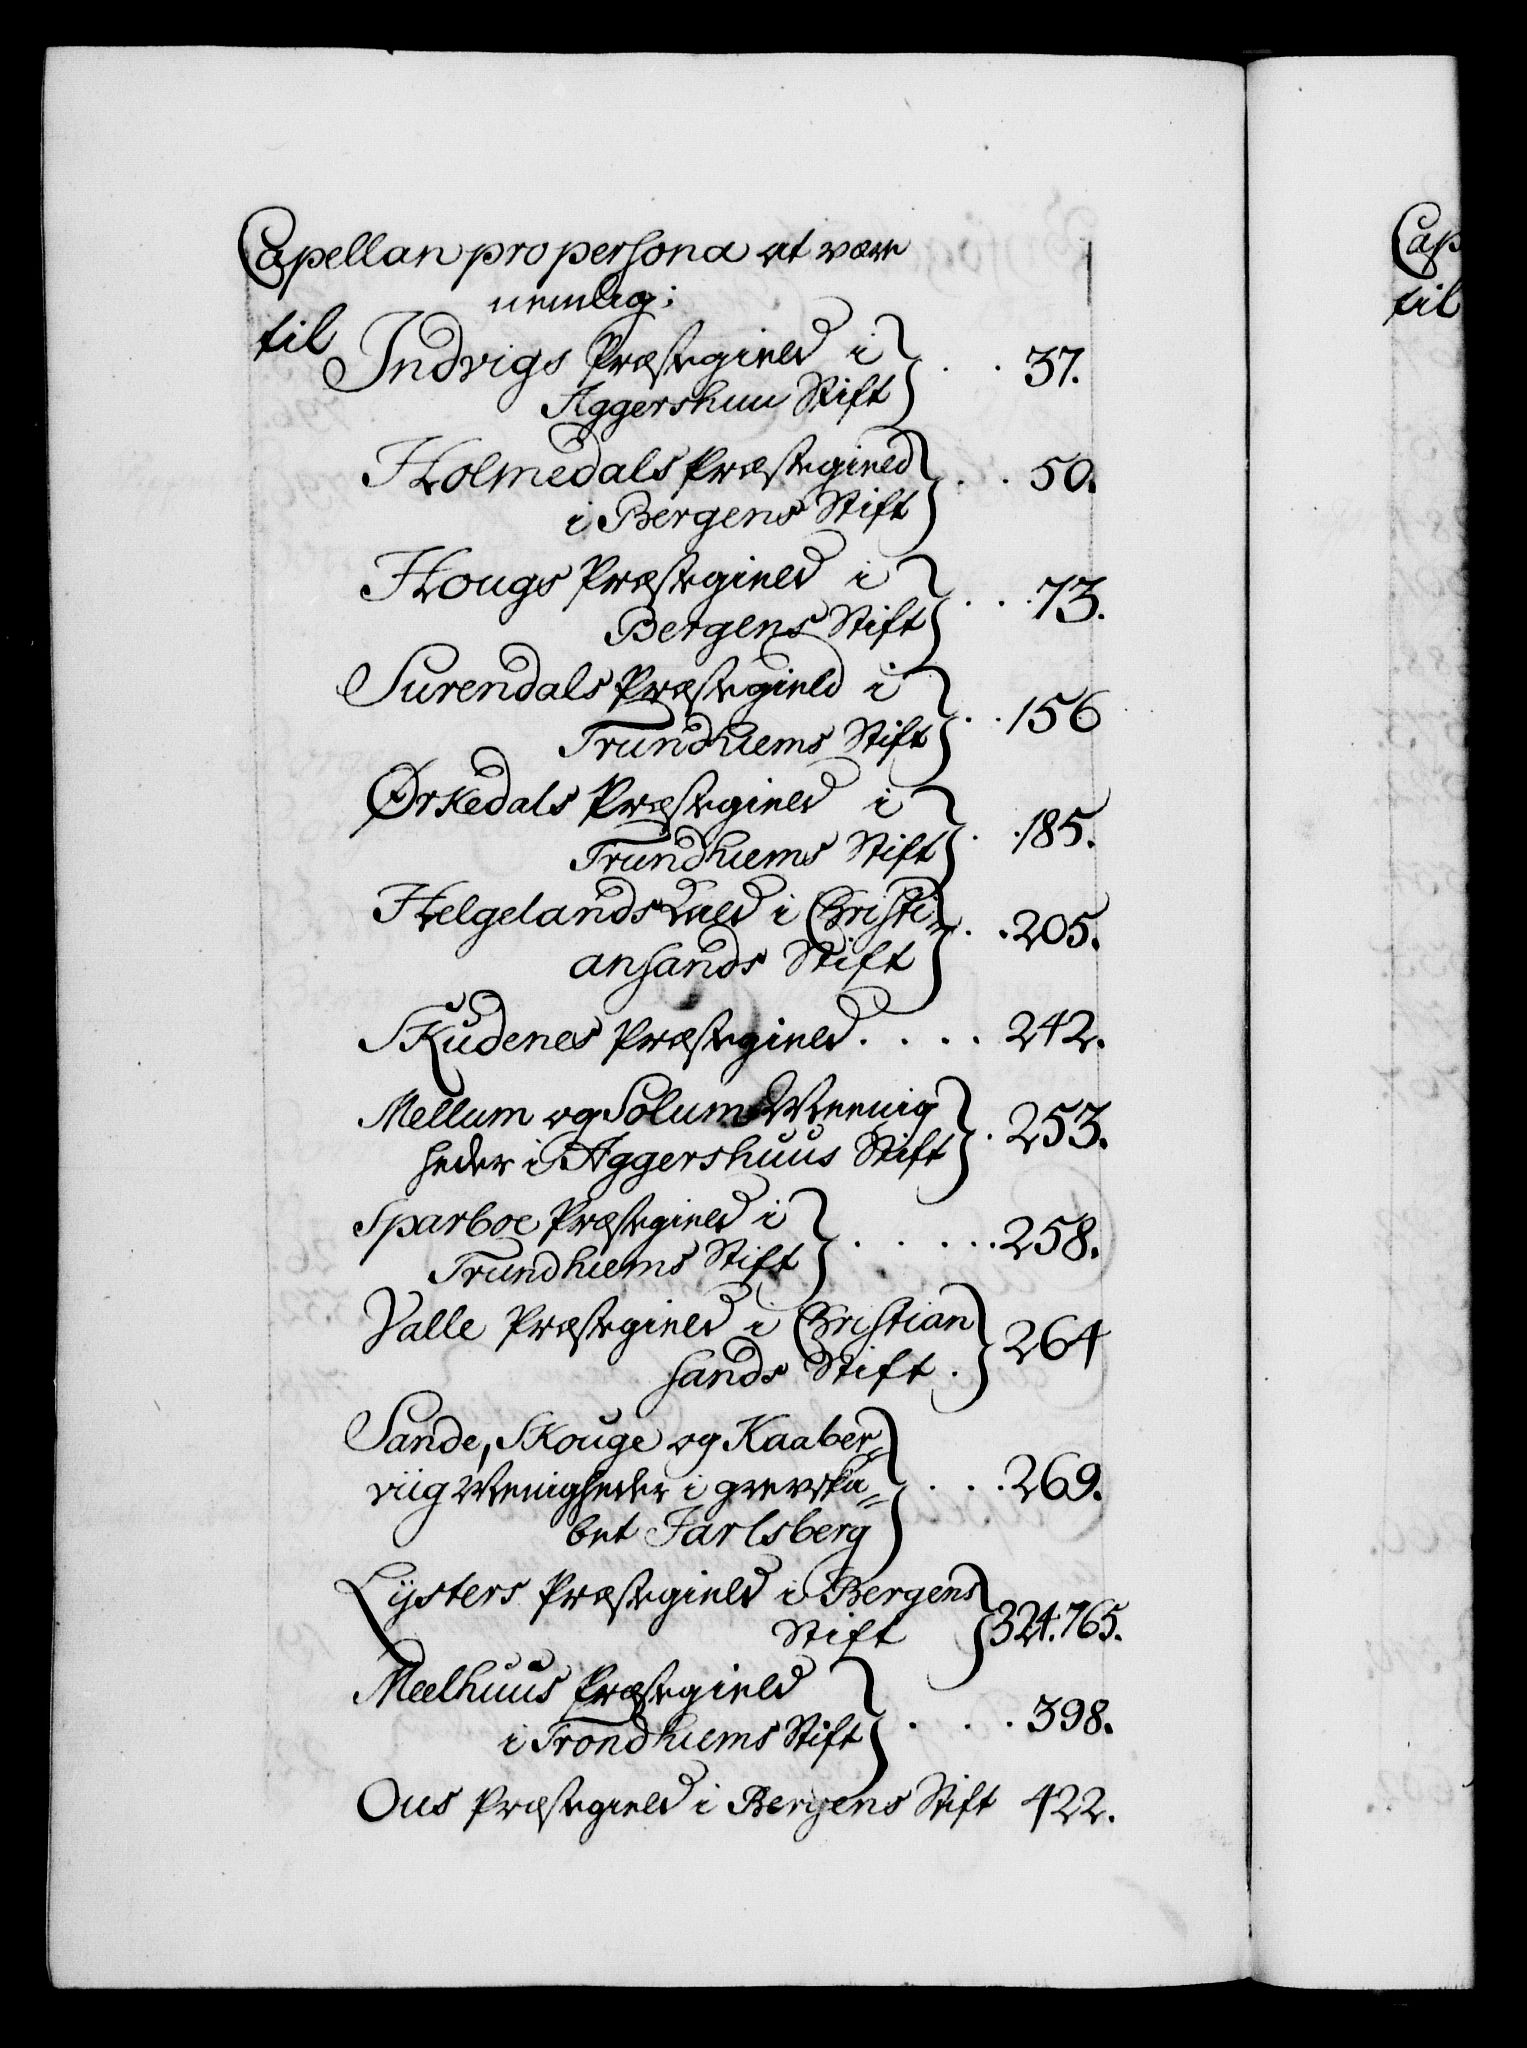 Capellan pro persona at være
nemlig:
til Indvigs Præstegield i
Aggershuu Stift . . 37.
Holmedals Præstegield
i Bergens Stift . . 50.
Hougs Præstegield i
Bergens Stift . . . 73.
Surendals Præstegield i
Trundhiems Stift . . 156
Ørkedals Præstegield i
Trundhiems Stift . . 185.
Helgelands Leed i Christi
ansands Stift . . 205.
Skudenes Præstegield . . . . 242.
Mellum og Solums Meenig
heder i Aggershuus Stift . 253.
Sparboe Præstegield i
Trundhiems Stift . . . . . 258.
Valle Præstegield i Christian
sands Stift . 264
Sande, Skouge og Kaaber=
viig Menigheder i grevska=
bet Jarlsberg . . . 269.
Lysters Præstegield i Bergens
Stift 324. 765.
Meelhuus Præstegield
i Trondhiems Stift . . . 398.
Ous Præstegield i Bergens Stift 422.
Cap
til